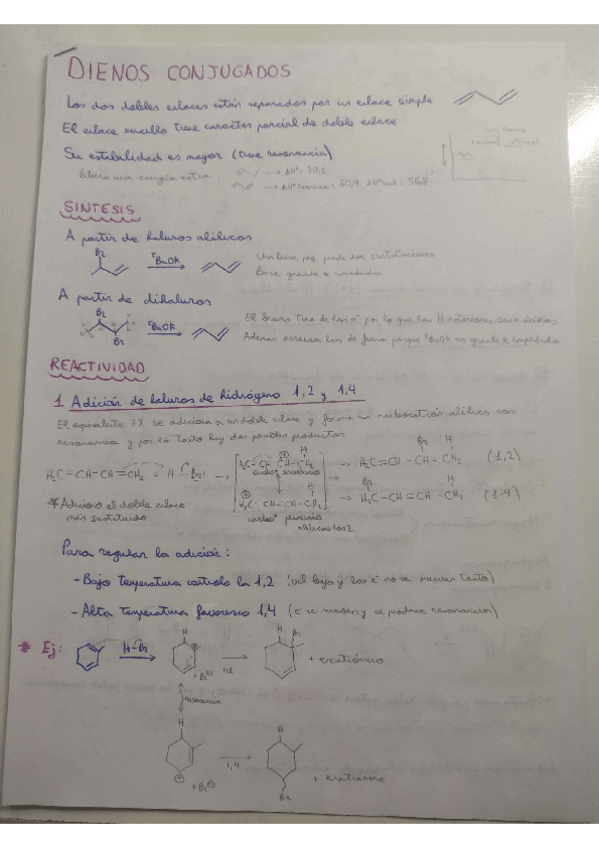 DIENOS CONJUGADOS
Los dos dobles enlaces están separados por un enlace simple
El enlace sencillo tiene carácter parcial de doble enlace
Su estabilidad es mayor (tiene resonancia)
libera una energía extra
→ ΔHº: 30,2
→ ΔHº 60,4 ΔHº : 56,8
SINTESIS
A partir de haluros alílicos
Br
ᵗBuOK
Una base peq puede dar sustituciones
Base grande e impedida
A partir de dihaluros
Br
Br
ᵗBuOK
El bromo tira de los e⁻ por lo que los H son ácidos
Además arranca los de fuera porque ᵗBuOK es grande e impedido
REACTIVIDAD
1 Adición de haluros de hidrógeno 1,2 y 1,4
El HX se adiciona a un doble enlace y forma un carbocatión alílico con
resonancia y por lo tanto hay dos posibles productos
H₂C=CH-CH=CH₂ + H-Br →
→ H₂C=CH-CH-CH₂ (1,2)
Br H
→ H₂C-CH=CH-CH₂ (1-4)
Br H
* al doble enlace
más sustituido
Para regular la adición:
- Bajo temperatura controlo la 1,2
- Alta temperatura favorezco 1,4 (e⁻ se mueven y se produce resonancia)
* Ej:
H-Br
H
+ Br⁻
1,2
H
Br
+ enatiómero
resonancia
H
+ Br⁻
1,4
H
Br
+ enatiómero